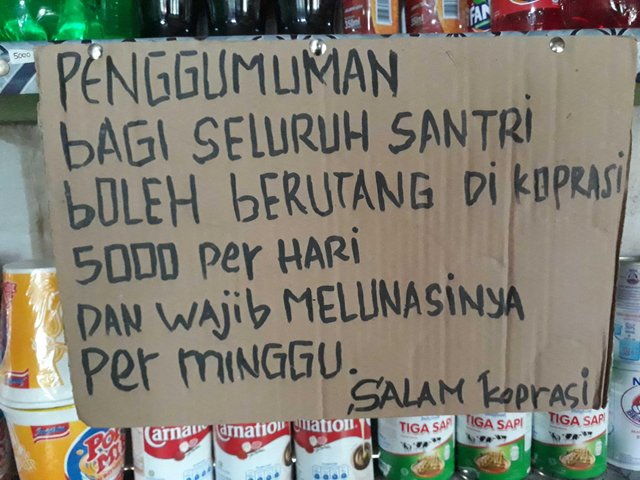 5000
FAN
PENGGUMUMAN
bAGI SELURUH SANTRI
bOLEH bERUTANG Di KOPRASI
5000 per HARI
DAN WAJib MELUNASiNYA
per MINGGU.
SALAM KopRASi
Carnation
Carnation
Carnation
TIGA SAPI
TIGA SAPI
TIGA SAPI